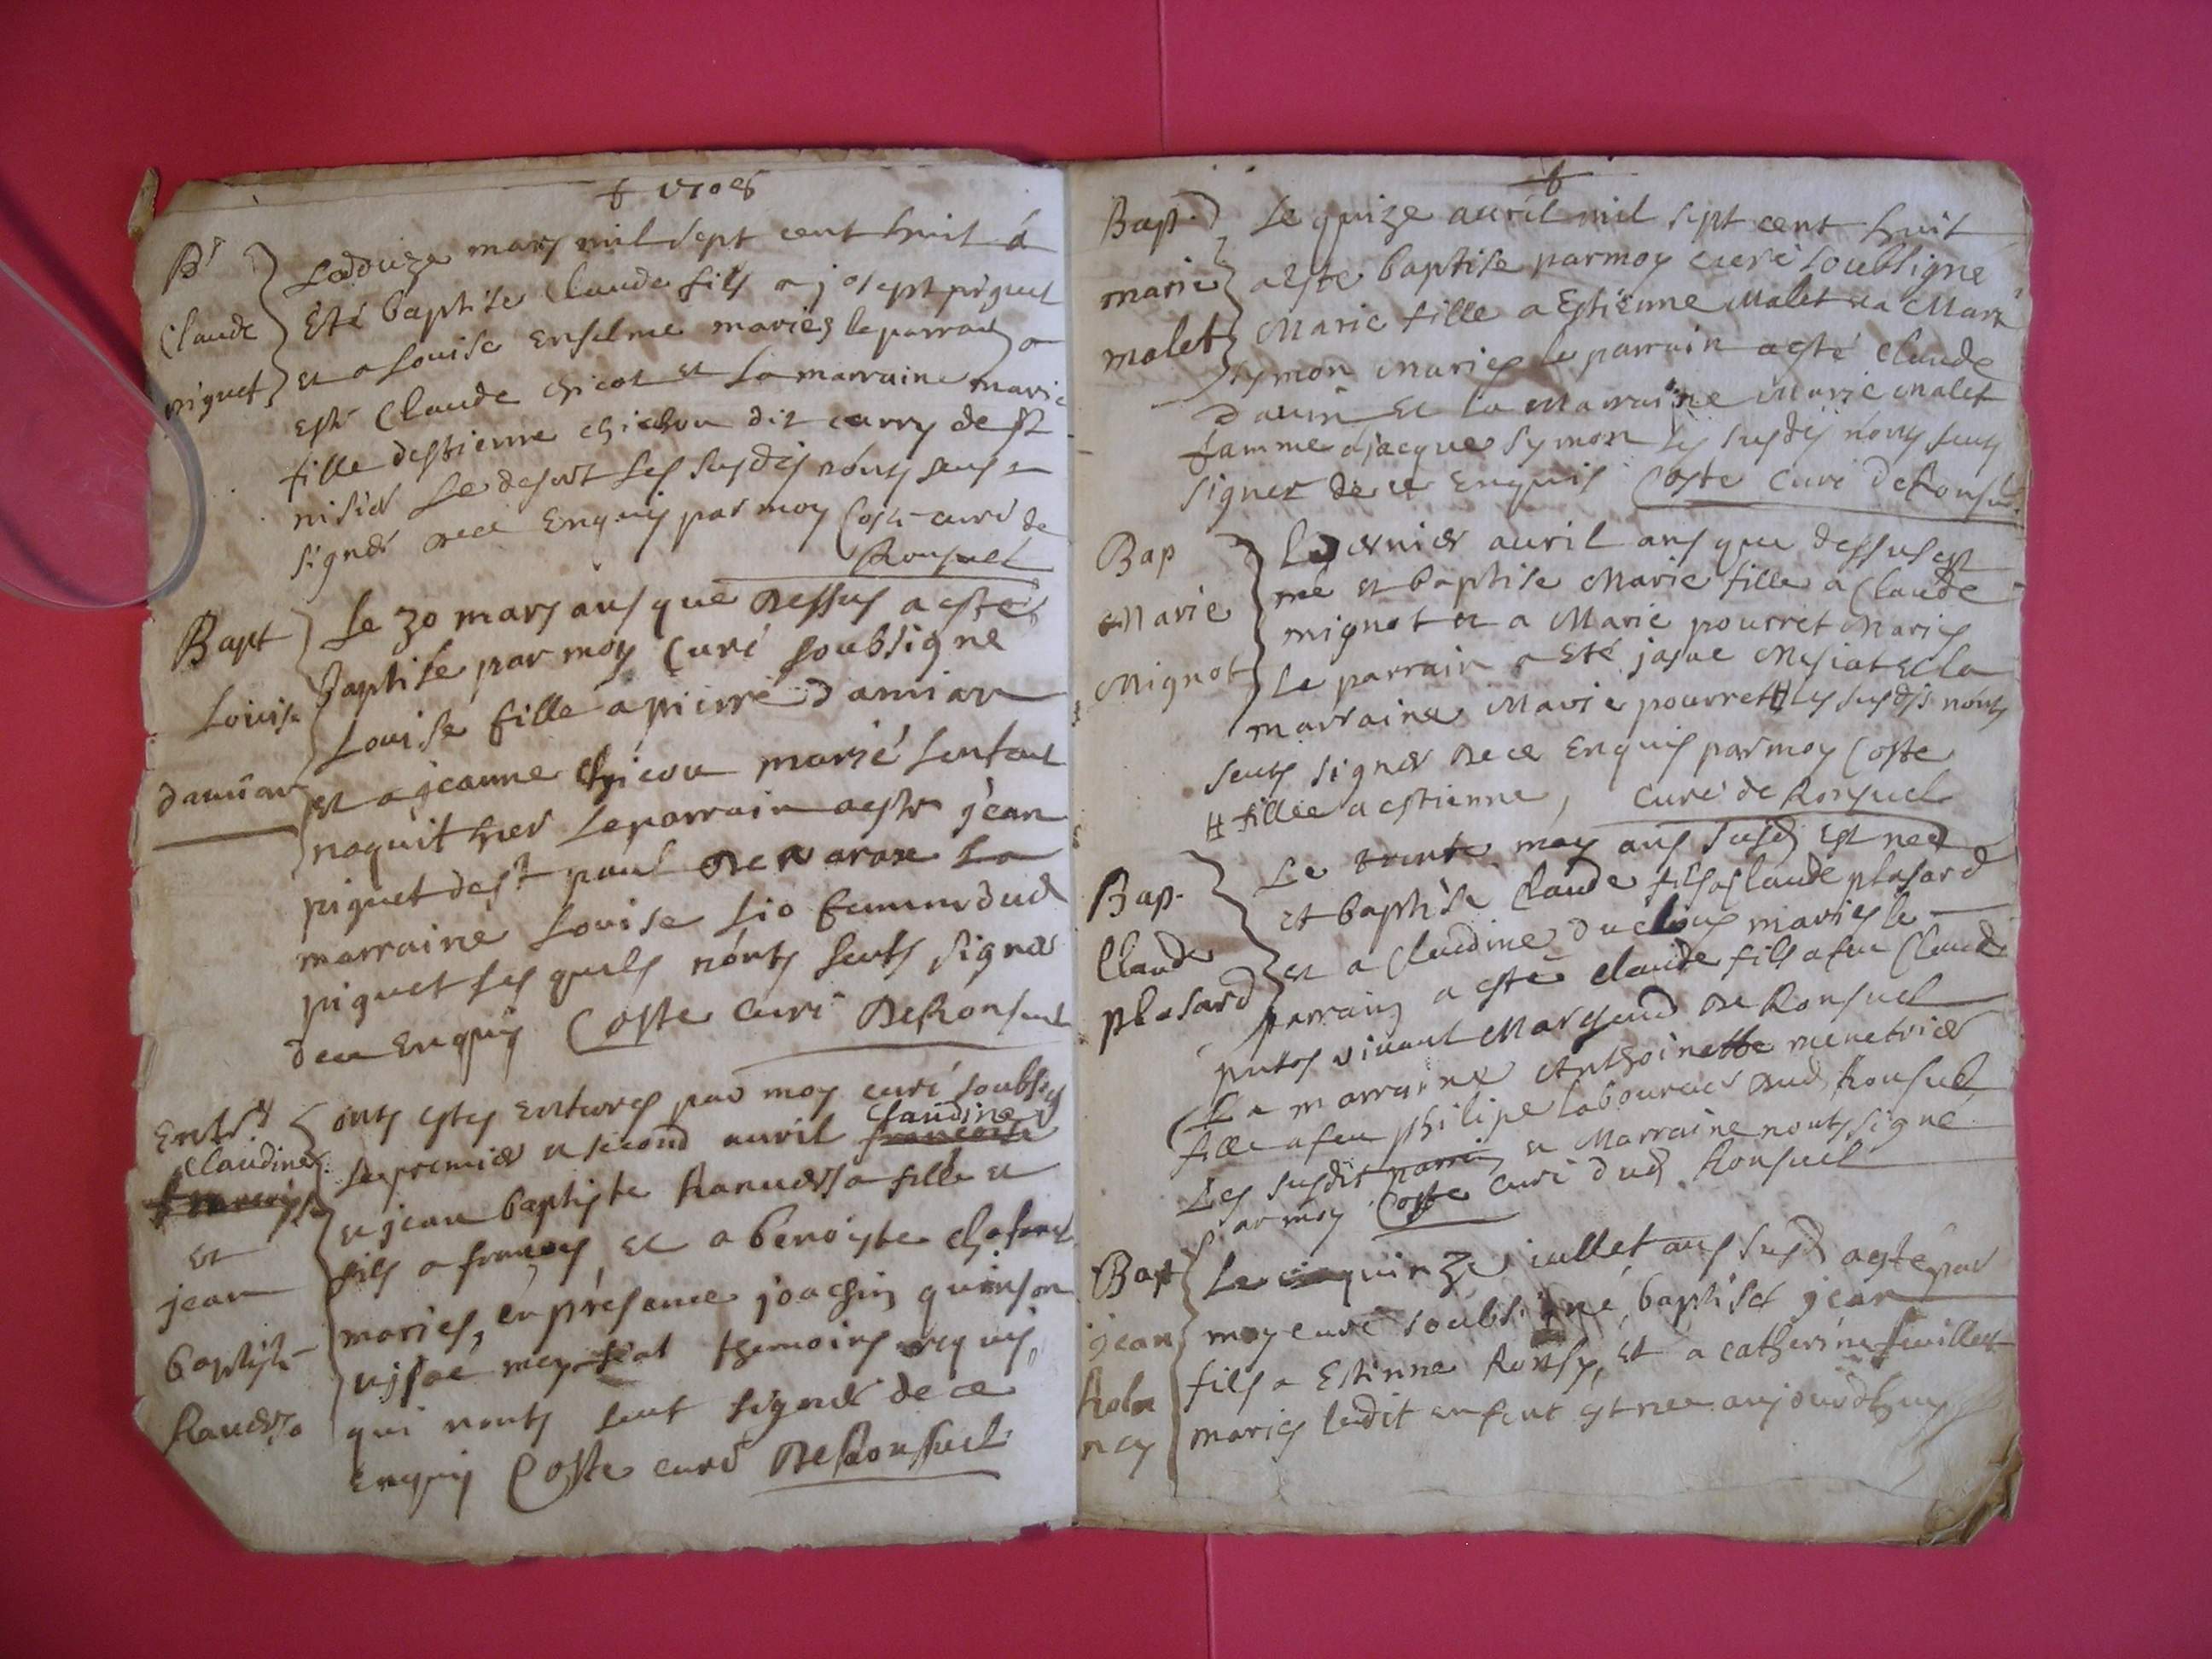 1708
Bt
Claude
piguet
Le douze mars mil sept cent huit a
Esté baptise Claude fils a joseph piguet
et a Louise Enselme mariés le parrain a
esté Claude chicot et la marraine marie
fille destienne chichou dit carry de st
nisier Le desert les susdis nonts seus
signer de ce Enquis par moy Coste curé de
Ronsuel
Bapt
Louise
damian
Le 30 mars ans que dessus a esté
baptise par moy Curé soubsigne
Louise fille a pierre damian
et a jeanne chicou marié lenfant
naquit hier Le parrain a esté jean
piguet de st paul de varax La
marraine Louise Lio femme dud
piguet les quels nonts seuts signer
de ce Enquis Coste curé De Ronsuel
Entr
Claudine
françoise
et
jean
baptiste
Ravassa
onts estés Enterrés par moy curé soubsig
Le premier et second auril françoise Claudine
et jean baptiste fille et
fils a françoys et a benoiste
mariés, en présance joachin quinson
et jsaé mesiat themoins requis,
qui nonts seut signer de ce
enquis Coste curé De Ronsuel
Bap.
marie
malet
Le quize auril mil sept cent huit
a este baptise par moy curé soubsigne
Marie fille a Estienne Malet et a Marie
symon mariés le parrain a esté Claude
dauin et la Marraine Marie malet
famme a jacque symon les susdis nonts seuts
signer de ce Enquis Coste Curé de Ronsuel
Bap
Marie
Mignot
Le dernier auril ans que dessus est
né et baptise Marie fille a Claude
mignot et a Marie pourret Mariés
Le parrain a Eté jasae Mesiat et la
marraine Marie pourret # les susdis nonts
seuts signer de ce Enquis par moy Coste
# fillee a estienne, Curé de Ronsuel
Bap.
Claude
plasard
Le trente may ans susd est nee
et baptise Claude fils a Claude plasard
et a Claudine ducloux mariés le
parraing a esté Claude fils a feu Claude
putos viuant Marchand de Ronsuel
La marraine Anthoinette menetrier
fille a feu philipe laboureur dud Ronsuel
Les susdit parrain et Marraine nonts signé
par moy Coste curé dud Ronsuel
Bap
jean
Le quinze iullet ans susd a esté par
moy curé soubsigné baptiser jean
fils a Estienne Ronsy, et a catherine feuillet
mariés ledit enfent est nee aujourdhuy